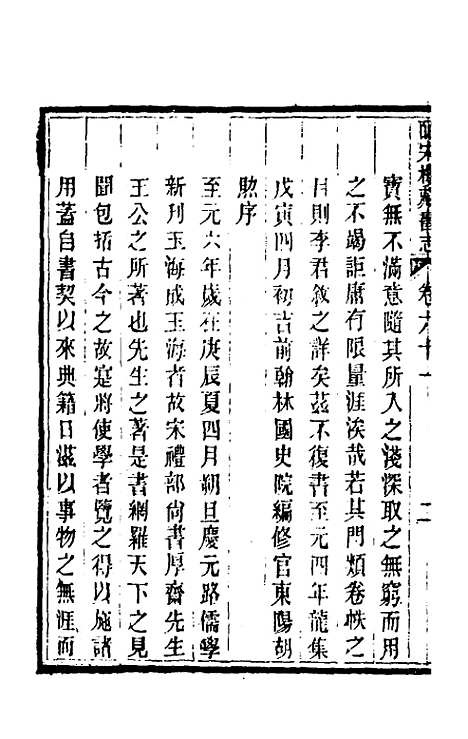 皕宋樓藏書志　卷六十一　二
寶無不滿意隨其所入之淺深取之無窮而用
之不竭詎庸有限量涯涘哉若其門類卷帙之
目則李君敘之詳矣茲不復書至元四年龍集
戊寅四月初吉前翰林國史院編修官東陽胡
助序
至元六年歲在庚辰夏四月朔旦慶元路儒學
新刊玉海成玉海者故宋禮部尚書厚齋先生
王公之所著也先生之著是書網羅天下之見
聞包括古今之故寔將使學者覽之得以施諸
用蓋自書契以來典籍日滋以事物之無涯而